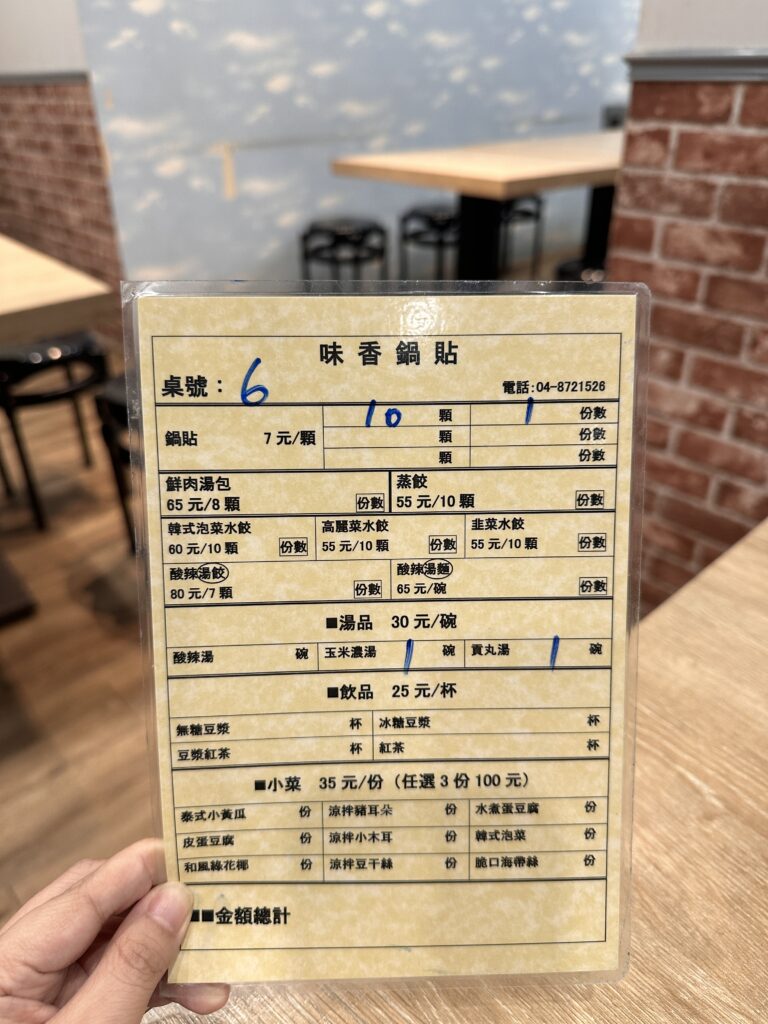 味香鍋貼
桌號： 6 電話:04-8721526
鍋貼 7元/顆 10 顆 1 份數
顆 份數
顆 份數
鮮肉湯包 蒸餃
65元/8顆 份數 55元/10顆 份數
韓式泡菜水餃 高麗菜水餃 韭菜水餃
60元/10顆 份數 55元/10顆 份數 55元/10顆 份數
酸辣湯餃 酸辣湯麵
80元/7顆 份數 65元/碗 份數
■湯品 30元/碗
酸辣湯 碗 玉米濃湯 1 碗 貢丸湯 1 碗
■飲品 25元/杯
無糖豆漿 杯 冰糖豆漿 杯
豆漿紅茶 杯 紅茶 杯
■小菜 35元/份（任選3份100元）
泰式小黃瓜 份 涼拌豬耳朵 份 水煮蛋豆腐 份
皮蛋豆腐 份 涼拌小木耳 份 韓式泡菜 份
和風綠花椰 份 涼拌豆干絲 份 脆口海帶絲 份
■■金額總計